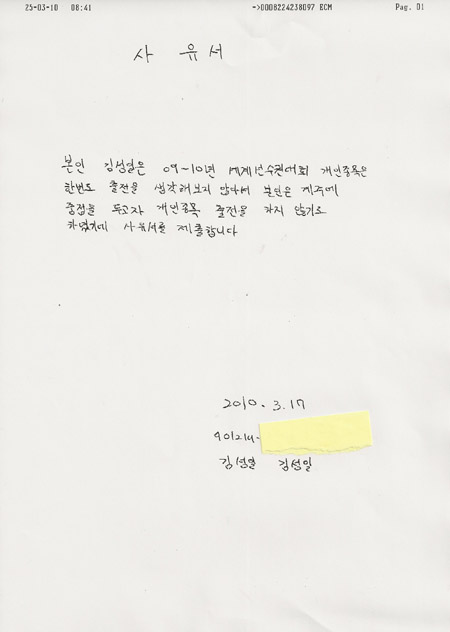 25-03-10 08:41 ->0008224238097 ECM Pag. 01
사 유 서
본인 김성일은 09-10년 세계선수권대회 개인종목은
한번도 출전을 생각해보지 않아서 본인은 계주에
중점을 두고자 개인종목 출전을 하지 않기로
하였기에 사유서를 제출합니다
2010. 3.17
901214-
김성일 김성일